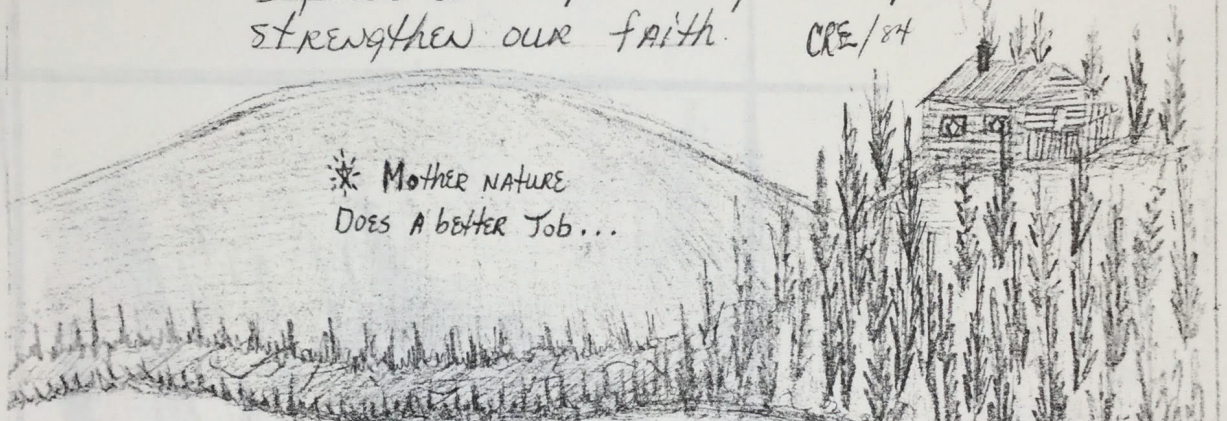 strengthen our faith. CRE/84
* Mother Nature
Does A better Job...